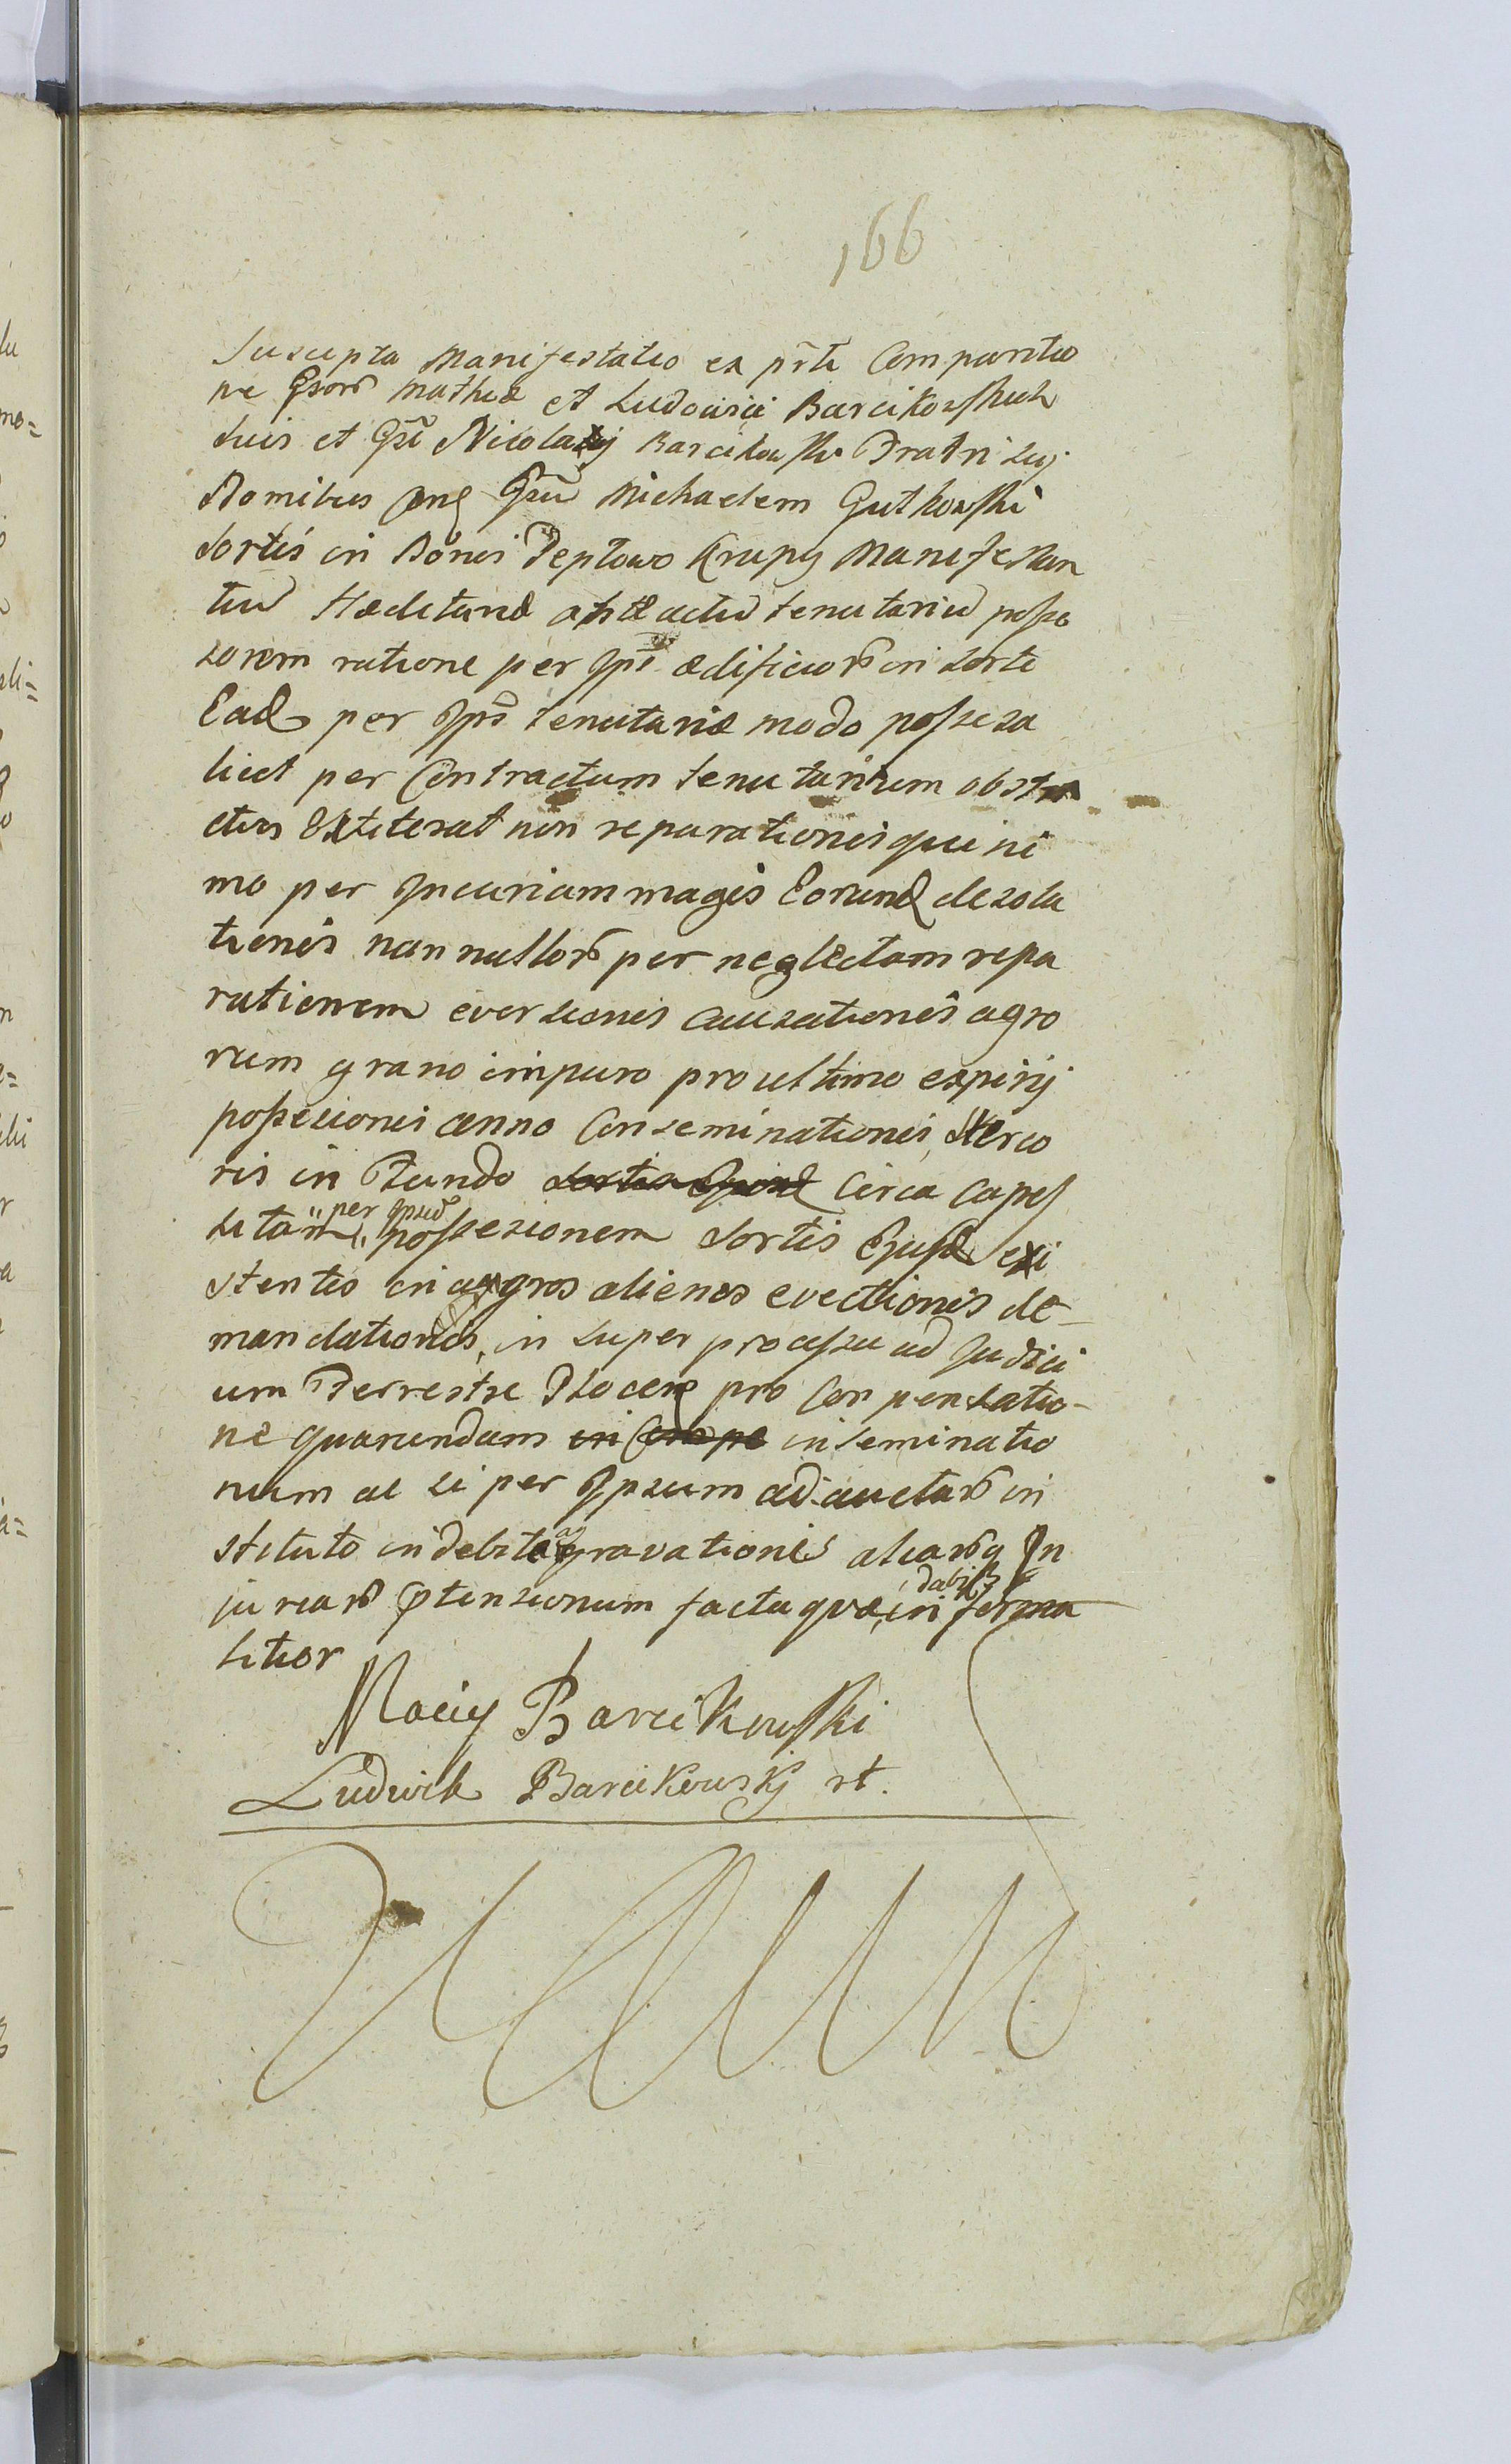 166
Suscepta Manifestatio ex prte Comparitio
ne Gsorū Mathiæ et Ludovici Barcikowskich
suis et Gsi Nicolaij Barcikowski Fratri suj
Nomibus Gsū Michaelem Gutkowski
sortis in Bonis Peptowo Krupy Manifestan
tiū Hæditariæ anteactiū tenutariū posse
sorem ratione per Ipsū ædificiorū in sorte
Ead per Ipsū tenutariæ modo possessa
licet per Contractum tenutarium obstri
ctus Extiterat non reparationis qui ni
mo per Incuriam magis Eorund desola
tionis nonnullorū per neglectam repa
rationem eversionis causationis agro
rum grano impuro pro ultimo expirij
possesionis anno Conseminationis, sterco
ris in Fundo Circa Capes
sitam per Ipsū possesionem sortis Ejusd exi
stentis in agros alienos evectionis de-
mandationis, in super processu ad Judici
um Terrestre Plocen pro Compensatio-
ne quarundam in inseminatio
num ac si per Ipsum adauctarū in
stituto indebitæ aggravationis aliarūq In
juriarū Ptensionum facta quæ, in dabit forma
litior
Maciey Barcikowski
Ludwik Barcikowskj